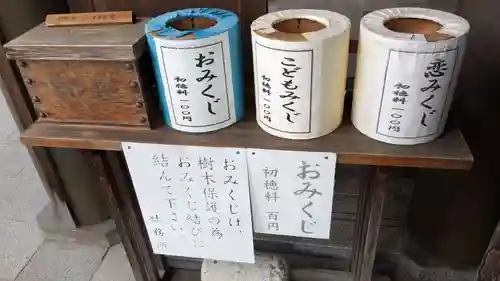 おみくじ
初穂料 一〇〇円
こどもみくじ
初穂料 一〇〇円
恋みくじ
初穂料 一〇〇円
おみくじは、
樹木保護の為
おみくじ結びに
結んで下さい。
社務所
おみくじ
初穂料 百円